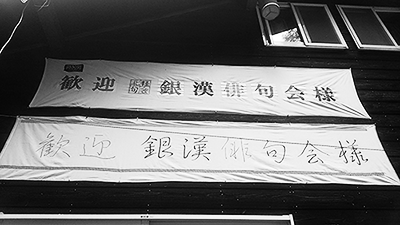 歓迎 銀漢俳句会様
歓迎 銀漢俳句会様